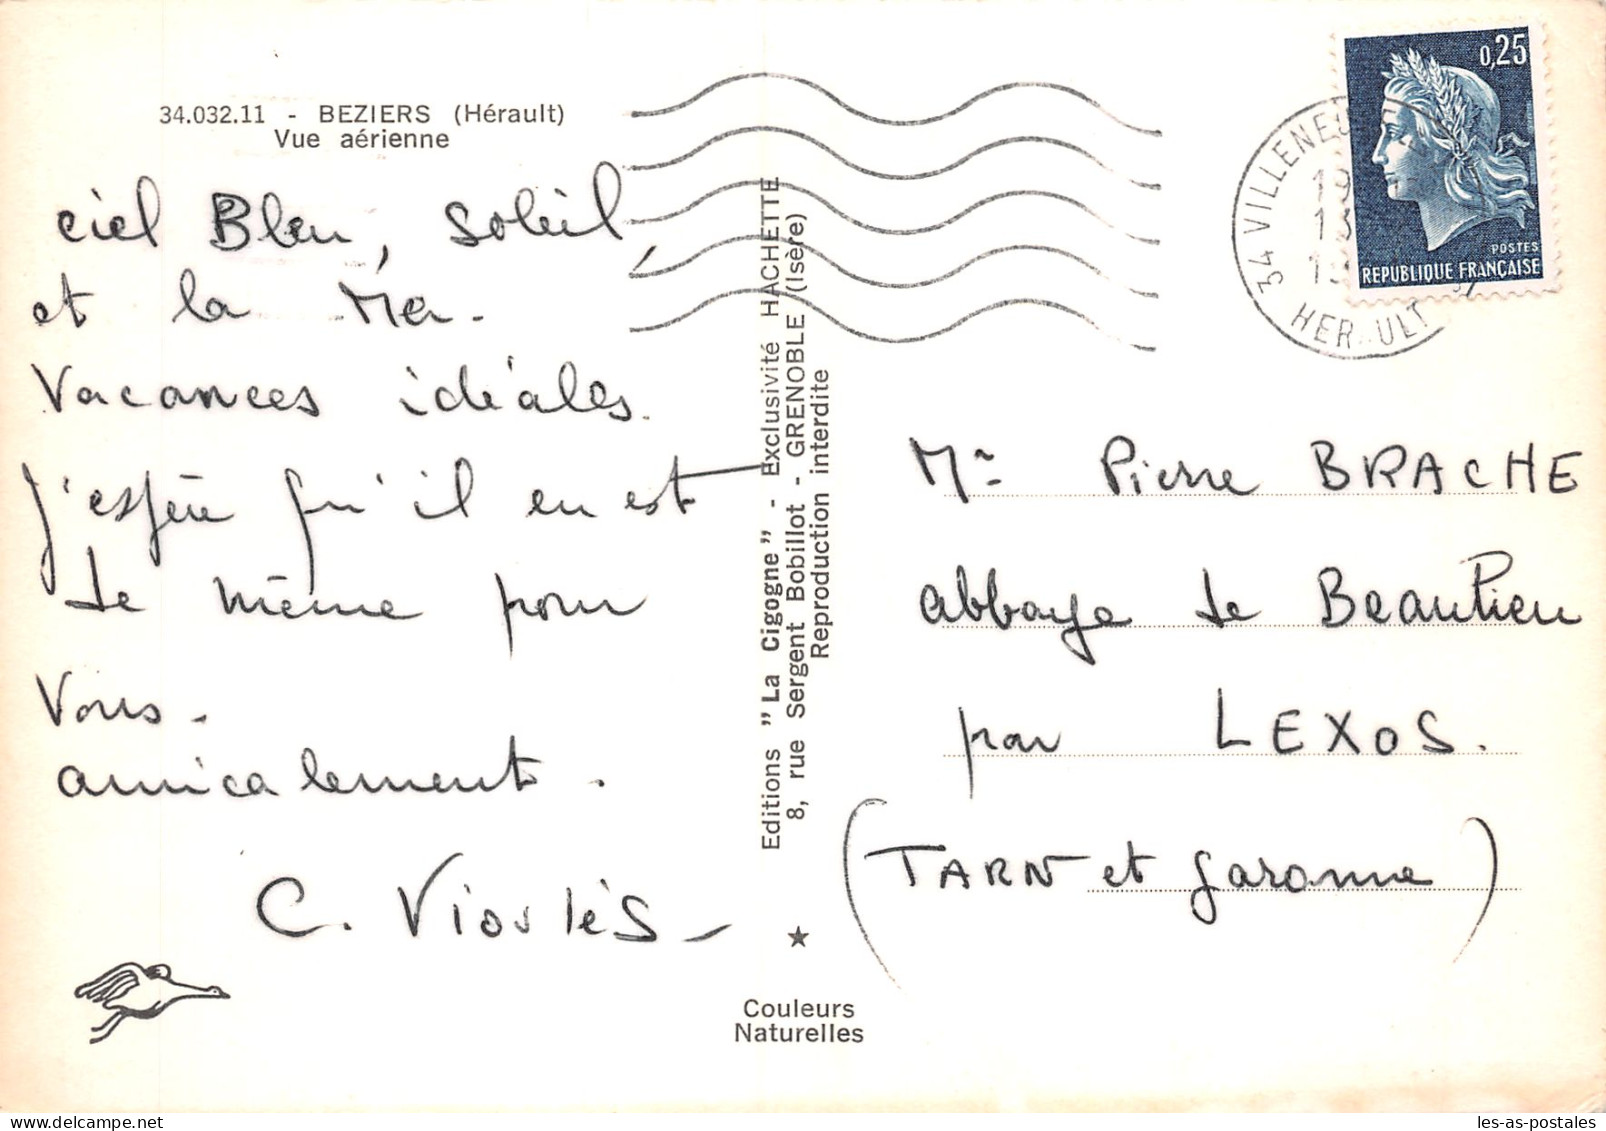 34.032.11 - BEZIERS (Hérault)
Vue aérienne
ciel Bleu, Soleil,
et la Mer.
Vacances idéales.
J'espère qu'il en est
de même pour
Vous.
amicalement.
C. Violès
Editions "La Cigogne" - Exclusivité HACHETTE
8, rue Sergent Bobillot - GRENOBLE (Isère)
Reproduction interdite
Couleurs
Naturelles
0,25
POSTES
REPUBLIQUE FRANÇAISE
34 VILLENEU
HER ULT
Mr Pierre BRACHE
abbaye de Beaulieu
par LEXOS.
(TARN et Garonne)
les-as-postales